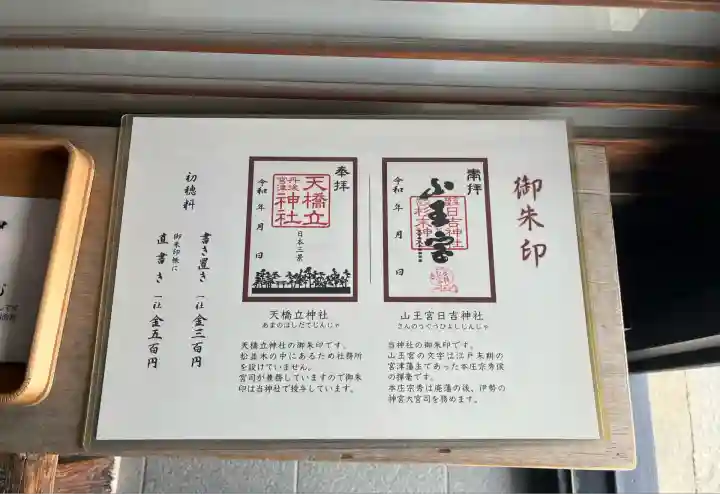 御朱印
奉拝
山王宮
日吉神社
令和 年 月 日
山王宮日吉神社
さんのうぐうひよしじんじゃ
当神社の御朱印です。
山王宮の文字は江戸末期の
宮津藩主であった本庄宗秀候
の揮毫です。
本庄宗秀は廃藩の後、伊勢の
神宮大宮司を務めます。
奉拝
天橋立
神社
丹後
宮津
日本三景
令和 年 月 日
天橋立神社
あまのはしだてじんじゃ
天橋立神社の御朱印です。
松並木の中にあるため社務所
を設けていません。
宮司が兼務していますので御朱
印は当神社で授与しています。
初穂料
書き置き 一社 金三百円
御朱印帳に
直書き 一社 金五百円